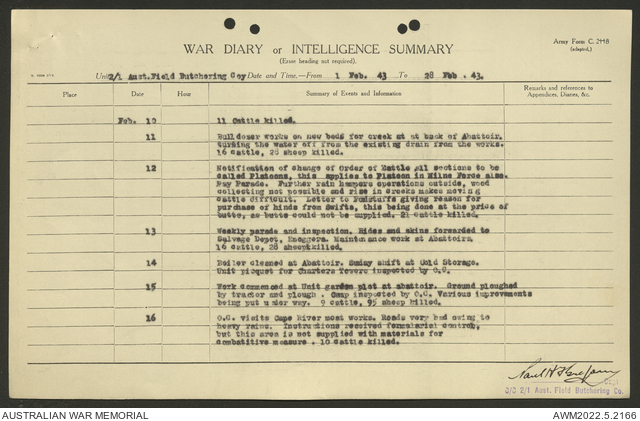 Army Form C. 2118
(adapted.)
WAR DIARY or INTELLIGENCE SUMMARY
(Erase heading not required).
Unit 2/1 Aust.Field Butchering Coy Date and Time.—From 1 Feb. 43 To 28 Feb. 43.
Place Date Hour Summary of Events and Information Remarks and references to
Appendices, Diaries, &c.
Feb. 10 11 Cattle killed.
11 Bulldozer works on new beds for creek at at back of Abattoir,
turning the water off from the existing drain from the works.
16 cattle, 28 sheep killed.
12 Notification of change of Order of Battle all sections to be
called Platoons, this applies to Platoon in Milne Force also.
Pay Parade. Further rain hampers operations outside, wood
collecting not possible and rise in creeks makes moving
cattle difficult. Letter to Foodstuffs giving reason for
purchase of hinds from Swifts, this being done at the price of
butts, as butts could not be supplied. 21 cattle killed.
13 Weekly parade and inspection. Hides and skins forwarded to
Salvage Depot, Enoggera. Maintenance work at Abattoirs,
16 cattle, 28 sheep killed.
14 Boiler cleaned at Abattoir. Sunday shift at Cold Storage.
Unit picquet for Charters Towers inspected by O.C.
15 Work commenced at Unit garden plot at abattoir. Ground ploughed
by tractor and plough. Camp inspected by O.C. Various improvements
being put under way. 9 cattle, 95 sheep killed.
16 O.C. visits Cape River meat works. Roads very bad owing to
heavy rains. Instructions received formalarial control,
but this area is not supplied with materials for
combatitive measure. 10 cattle killed.
Capt
O/C 2/1 Aust. Field Butchering Co.
AUSTRALIAN WAR MEMORIAL
AWM2022.5.2166